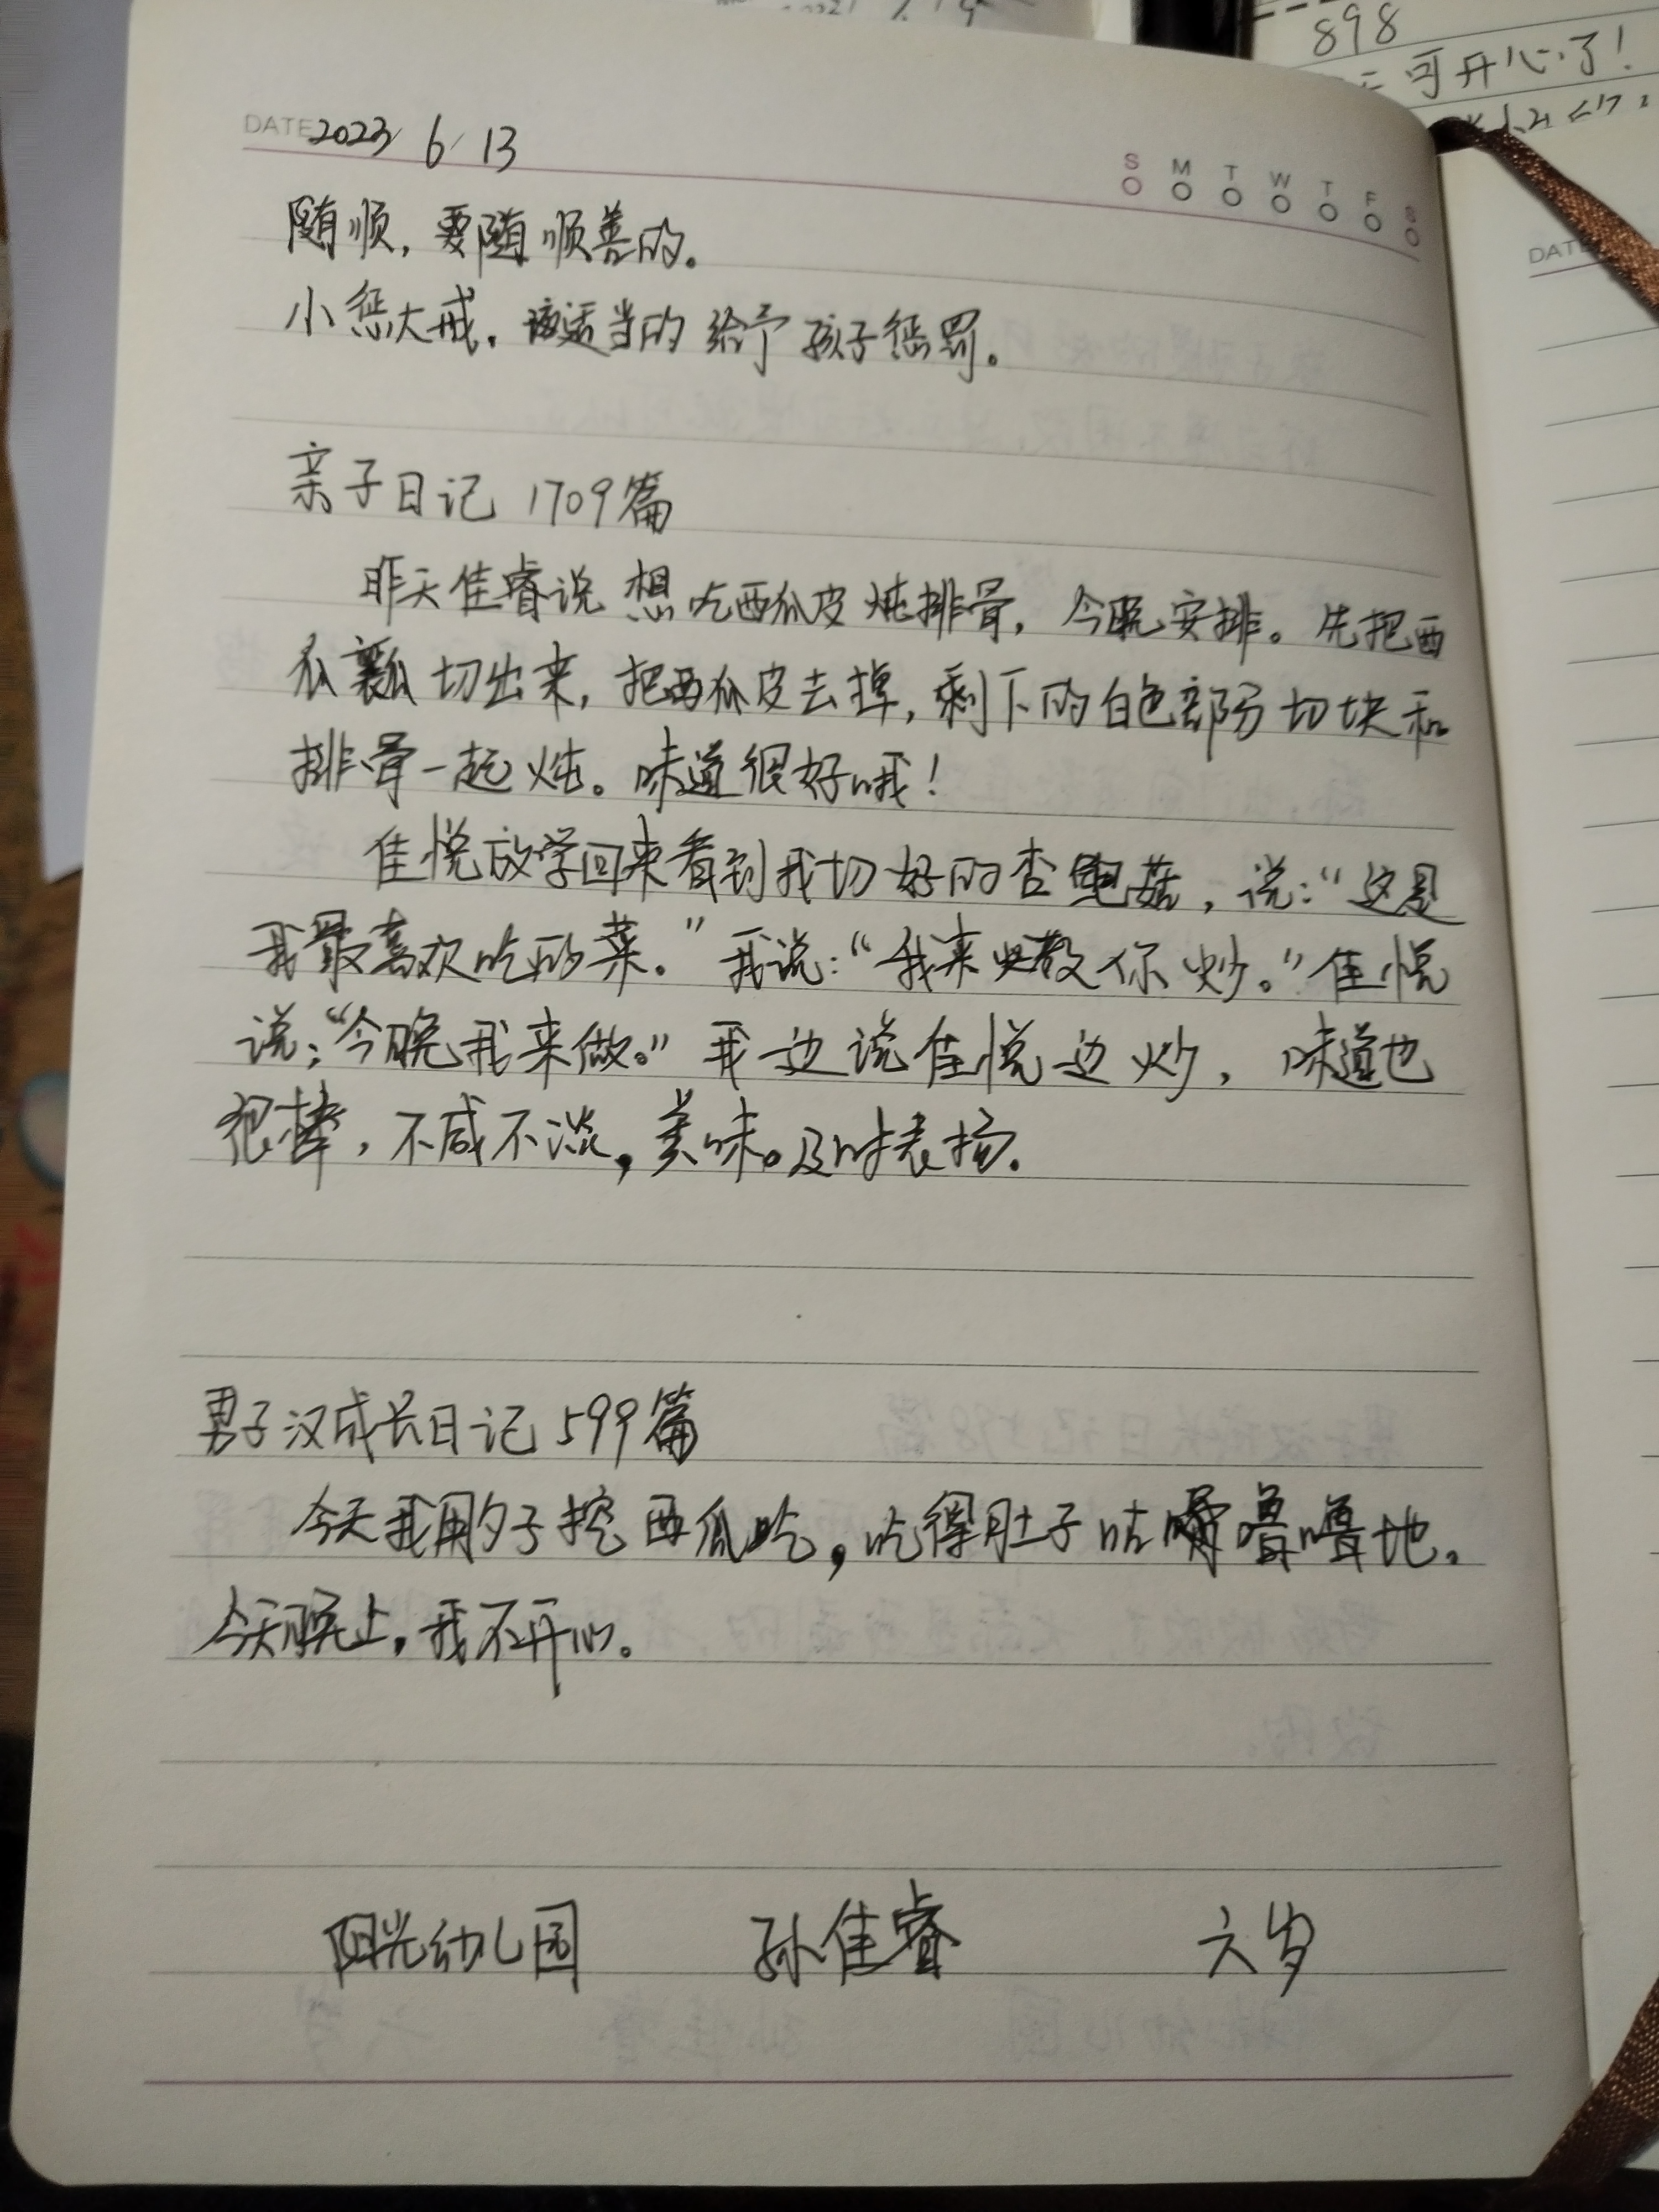 898
可开心了！
DATE 2023 6 13
S M T W T F S
DATE
随顺，要随顺善的。
小惩大戒，该适当的给予孩子惩罚。
亲子日记 1709篇
昨天佳睿说想吃西瓜皮炖排骨，今晚安排。先把西
瓜瓤切出来，把西瓜皮去掉，剩下的白色部分切块和
排骨一起炖。味道很好哦！
佳悦放学回来看到我切好的杏鲍菇，说：“这是
我最喜欢吃的菜。”我说：“我来教你炒。”佳悦
说：“今晚我来做。”我边说佳悦边炒，味道也
很棒，不咸不淡，美味。及时表扬。
男子汉成长日记 599篇
今天我用勺子挖西瓜吃，吃得肚子咕嘟噜噜地。
今天晚上，我不开心。
阳光幼儿园 孙佳睿 六岁